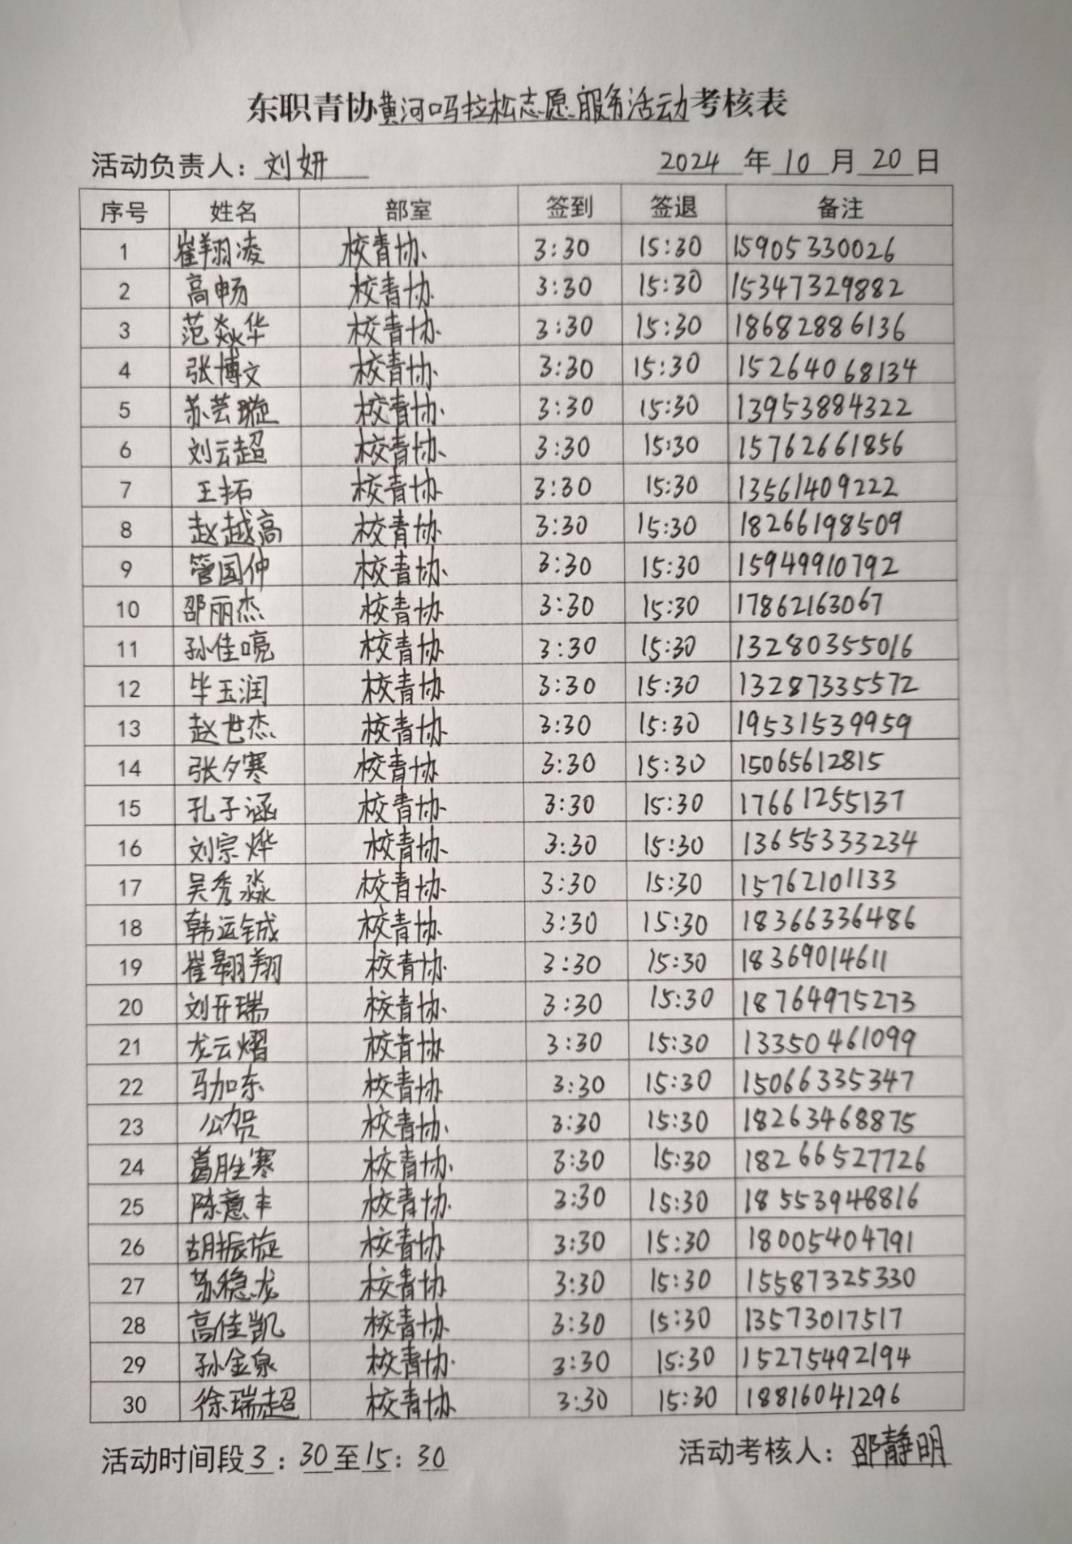 东职青协黄河吗拉松志愿服务活动考核表
活动负责人：刘妍 2024 年 10 月 20 日
序号 姓名 部室 签到 签退 备注
1 崔翔凌 校青协 3:30 15:30 15905330026
2 高畅 校青协 3:30 15:30 15347329882
3 范焱华 校青协 3:30 15:30 18682886136
4 张博文 校青协 3:30 15:30 15264068134
5 苏芸璇 校青协 3:30 15:30 13953884322
6 刘云超 校青协 3:30 15:30 15762661856
7 王拓 校青协 3:30 15:30 13561409222
8 赵越高 校青协 3:30 15:30 18266198509
9 管国仲 校青协 3:30 15:30 15949910792
10 邵丽杰 校青协 3:30 15:30 17862163067
11 孙佳喨 校青协 3:30 15:30 13280355016
12 毕玉润 校青协 3:30 15:30 13287335572
13 赵世杰 校青协 3:30 15:30 19531539959
14 张夕寒 校青协 3:30 15:30 15065612815
15 孔子涵 校青协 3:30 15:30 17661255137
16 刘宗烨 校青协 3:30 15:30 13655333234
17 吴秀淼 校青协 3:30 15:30 15762101133
18 韩运铖 校青协 3:30 15:30 18366336486
19 崔翱翔 校青协 3:30 15:30 18369014611
20 刘开瑞 校青协 3:30 15:30 18764975273
21 龙云熠 校青协 3:30 15:30 13350461099
22 马加东 校青协 3:30 15:30 15066335347
23 公贺 校青协 3:30 15:30 18263468875
24 葛胜寒 校青协 3:30 15:30 18266527726
25 陈意丰 校青协 3:30 15:30 18553948816
26 胡振旋 校青协 3:30 15:30 18005404791
27 苏稳龙 校青协 3:30 15:30 15587325330
28 高佳凯 校青协 3:30 15:30 13573017517
29 孙金泉 校青协 3:30 15:30 15275492194
30 徐瑞超 校青协 3:30 15:30 18816041296
活动时间段3：30至15：30 活动考核人：邵静明